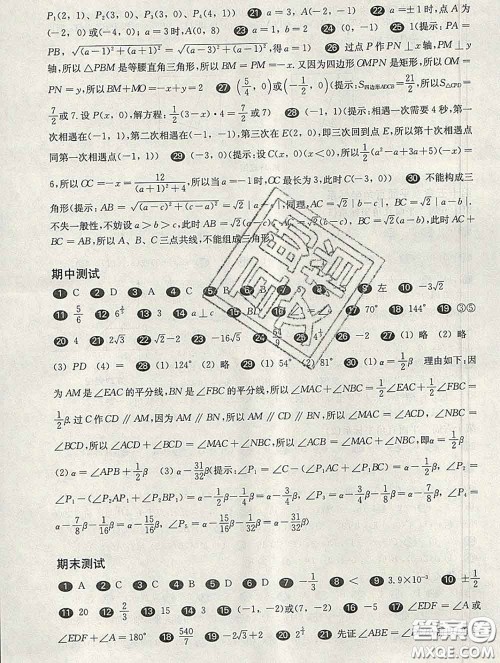 P₁(2, 1), P₂(3, 0), P₃(4, 1) 21 a=3, A(−2, −1) 22 a=±1时,点A为
(−2, 0)或(−4, 0); a=3时,A(0, 8) 23 (−1, 1) 24 (0, −1) 25 1(提示: PA=
PB, √(a−1)²+(1+a)²=√(3−a)²+(1−a)²,得a=1) 26 过点P作PN⊥x轴,PM⊥y
轴,所以△PBM是等腰直角三角形,所以BM=PM=−x. 又因为四边形OMPN是矩形,所以OM=
PN=y,所以BM+MO=−x+y=2
7/2或7. 设P(x, 0),解方程: 1/2(3−x)·4=7/2或7) 28 (−1, −1)(提示:相遇一次需要4秒,第一
次相遇在(−1, 1),第二次相遇在(−1, −1),第三次在E(2, 0),即三次回到原点E,所以第十次相遇点
同第一次相遇点(−1, 1)) 29 (−3, 0)(提示:设C(x, 0)(x<0),所以1/2(a²−a+3a+5)(−x)=
6,所以OC=−x=12/((a+1)²+4),所以当a=−1时,OC最长为3,此时C(−3, 0)) 30 不能构成三
角形(提示: AB=√(a−c)²+(c−a)²=√2|a−c|,同理,AC=√2|b−c|, BC=√2|a−b|,
不失一般性,不妨设a>b>c,此时AB=√2(a−c), AC=√2(b−c), BC=√2(a−b),此时AC+
BC=AB,所以A、B、C三点共线,不能组成三角形)
期中测试
1 C 2 D 3 A 4 C 5 B 6 B 9 左 10 −3√2
11 5/6 13 4 14 a⊥c 15 70° 18 144° 19 ③⑤
20 4 21 2√3 22 −2 23 −16√5 26 −2 27 (1) 略 (2) 略
(3) PD (4)= 28 (1) 124° (2) 略 29 (1) 54° (2) 81° 30 (1) α=1/2β 理由如下:因
为AM是∠EAC的平分线,BN是∠FBC的平分线,所以∠MAC+∠NBC=1/2∠EAC+1/2∠FBC
=1/2β. 过C作CD∥AM,因为AM∥BN,所以CD∥BN,所以∠MAC=∠ACD, ∠NBC=
∠BCD,所以∠ACD+∠BCD=∠MAC+∠NBC,所以∠ACB=∠MAC+∠NBC,即α=1/2β
(2) α=∠APB+1/2β (3) α−31/32β(提示: ∠P₁=∠C−(∠P₁AC+∠P₁BC)=α−1/2β, ∠P₂=
∠P₁−(∠P₂AP₁+∠P₂BP₁)=α−1/2β−1/4β=α−3/4β, ∠P₃=α−3/4β−1/8β=α−7/8β, ∠P₄=
α−7/8β−1/16β=α−15/16β, ∠P₅=α−15/16β−1/32β=α−31/32β)
期末测试
1 A 2 C 3 C 4 D 5 B 6 D 7 −1/3 8 < 9 3.9×10⁻³ 10 ±1/2
11 20 12 2/3 13 15 14 (−1, −2)或(7, −2) 15 ∠EDF=∠A或
∠EDF+∠A=180° 18 540/7 19 −2√3+2 20 2 21 先证∠ABE=
答案圈
MXQE.COM